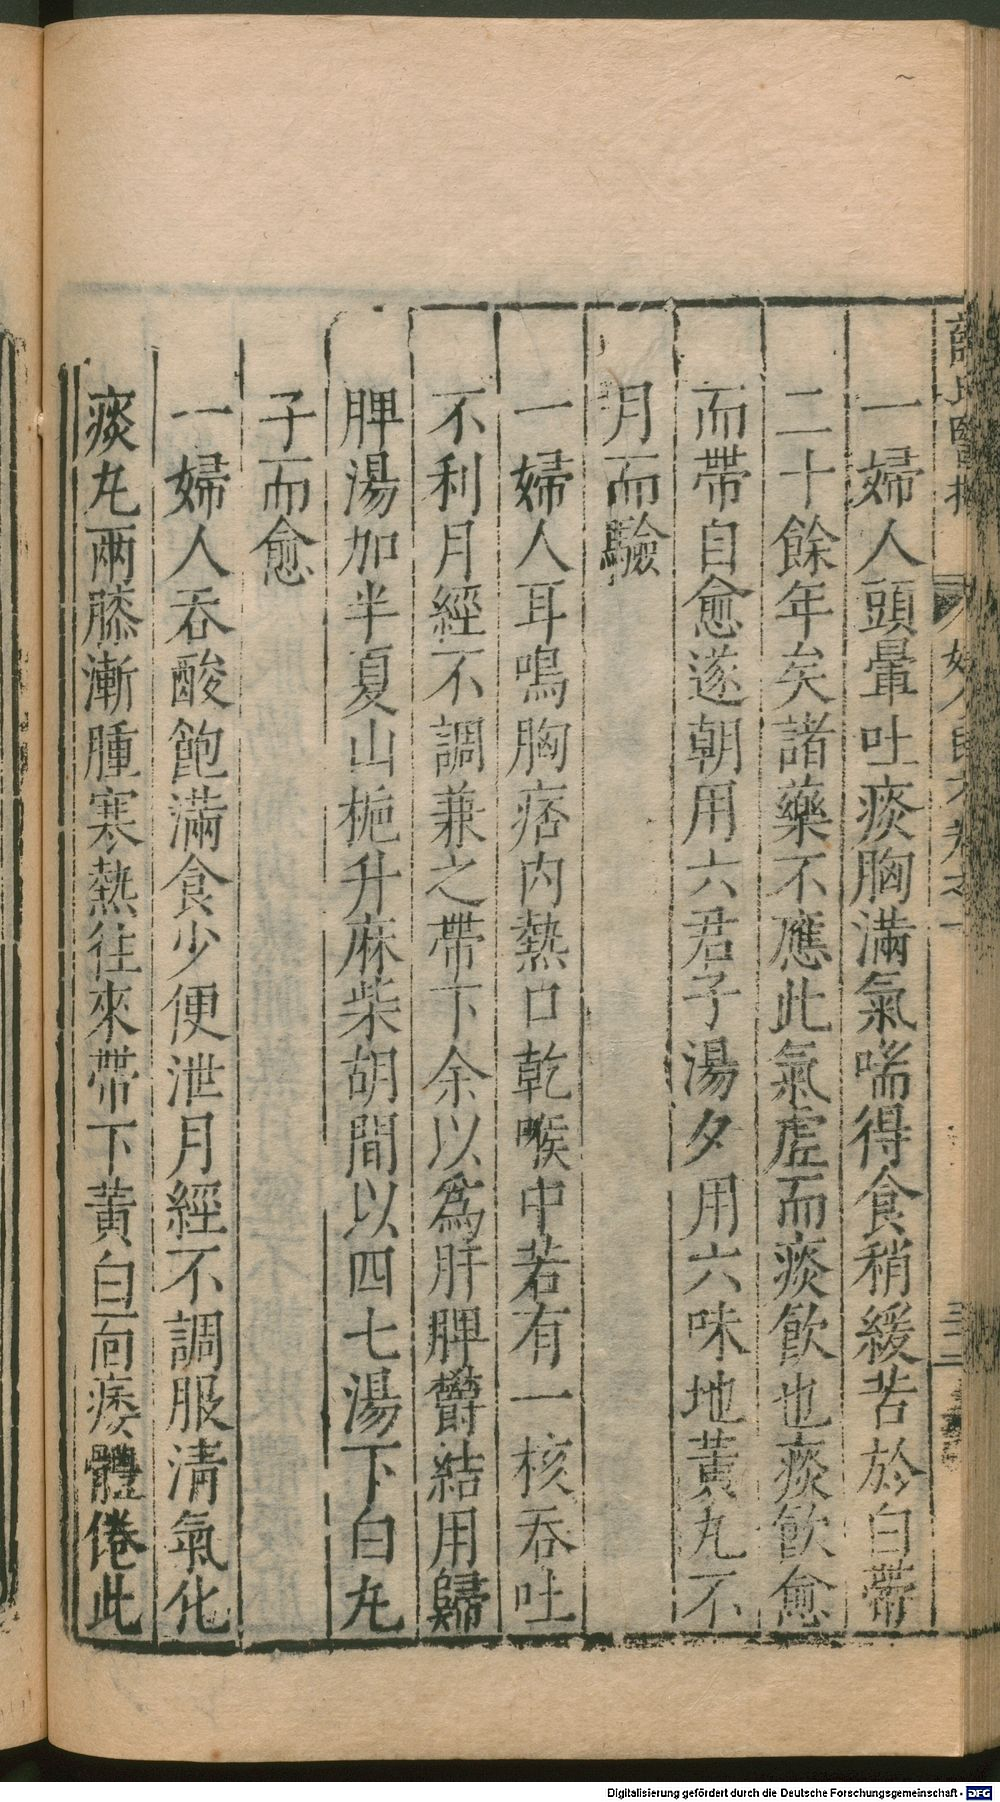 一婦人頭暈吐痰胸滿氣喘得食稍緩苦於白帶
二十餘年矣諸藥不應此氣虛而痰飲也痰飲愈
而帶自愈遂朝用六君子湯夕用六味地黃丸不
月而驗
一婦人耳鳴胸痞内熱口乾喉中若有一核吞吐
不利月經不調兼之帶下余以爲肝脾鬱結用歸
脾湯加半夏山梔升麻柴胡間以四七湯下白丸
子而愈
一婦人吞酸飽滿食少便泄月經不調服清氣化
痰丸兩膝漸腫寒熱往來帶下黃白面痿體倦此
Digitalisierung gefördert durch die Deutsche Forschungsgemeinschaft - DFG